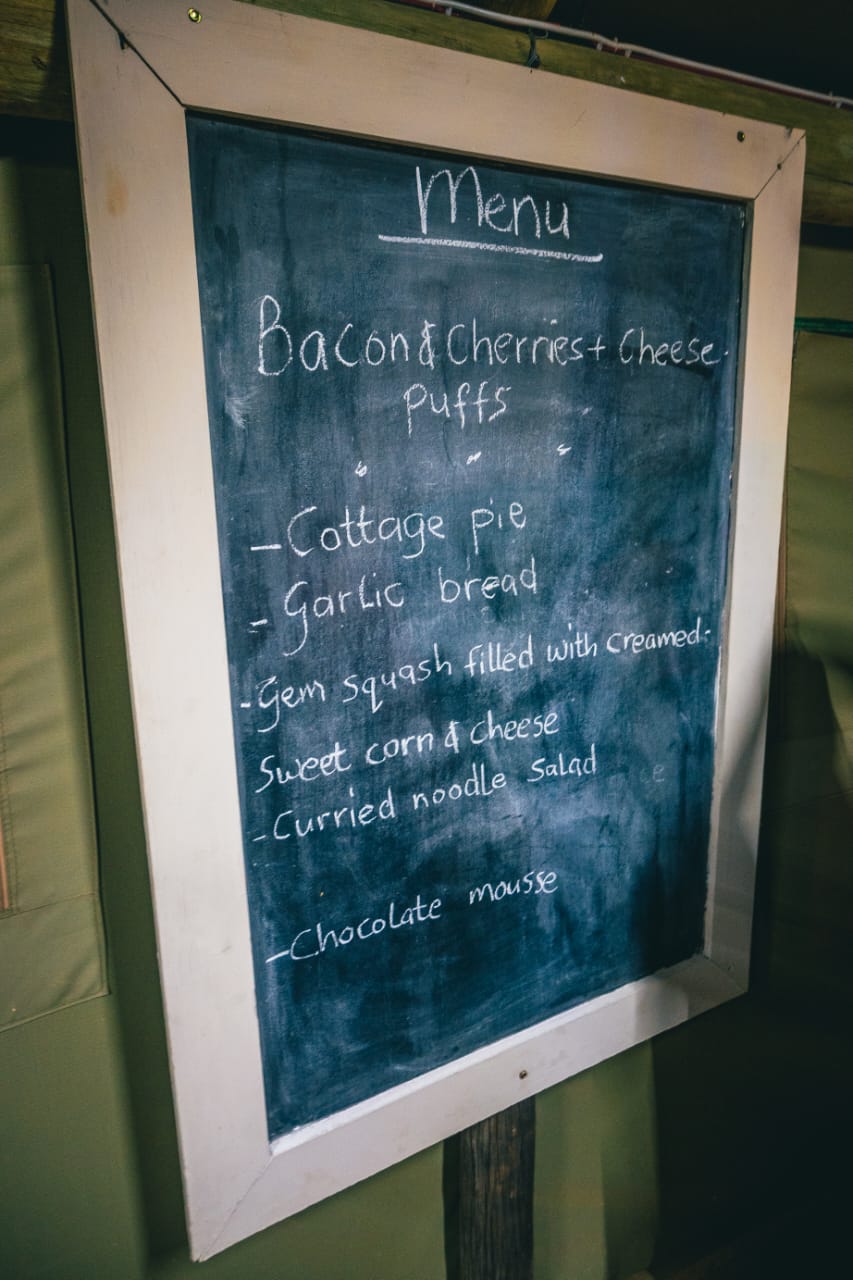 Menu
Bacon & Cherries + Cheese
Puffs
- Cottage pie
- Garlic bread
- Gem squash filled with creamed-
Sweet corn & cheese
- Curried noodle Salad
- Chocolate mousse